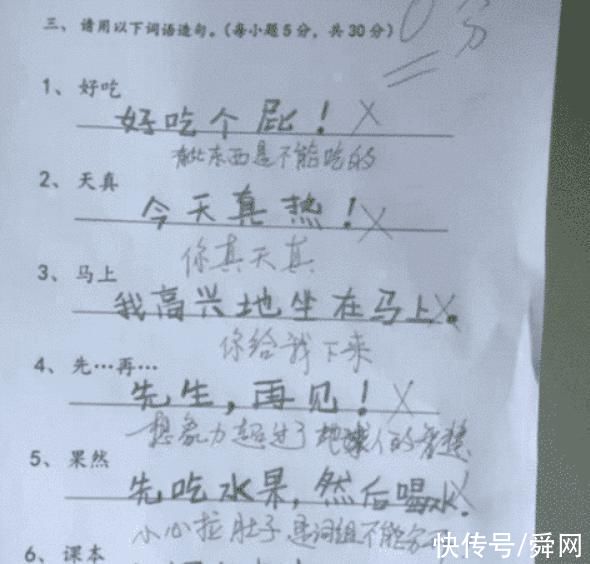 三、请用以下词语造句。(每小题5分，共30分) 0分
1、好吃
好吃个屁！ X
有些东西是不能吃的
2、天真
今天真热！ X
你真天真
3、马上
我高兴地坐在马上。 X
你给我下来
4、先…再…
先生，再见！ X
想象力超过了地球人的智慧
5、果然
先吃水果，然后喝水. X
小心拉肚子 是词组不能分开
6、课本
快传号/舜网